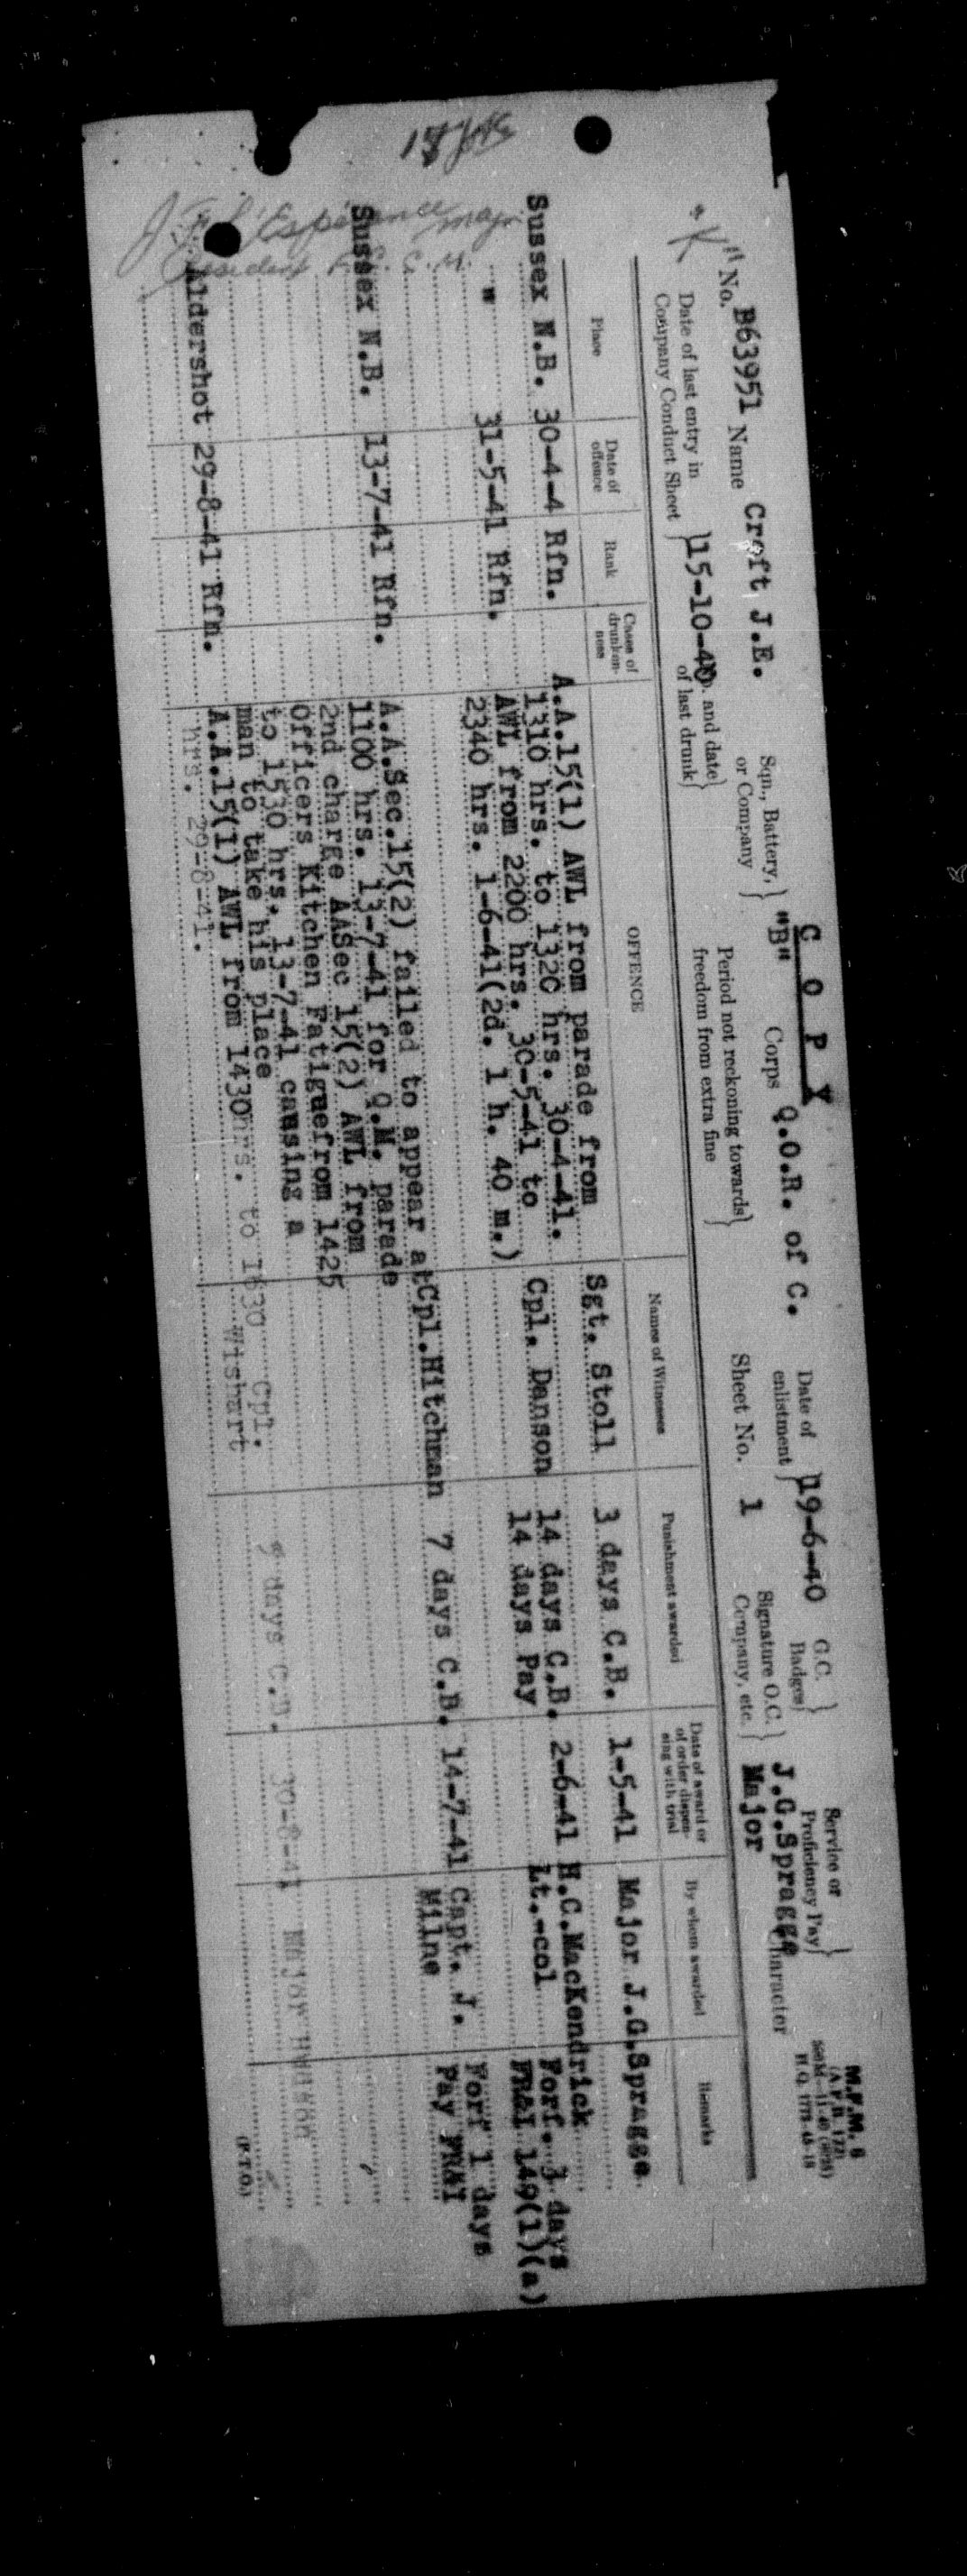 C O P Y
M.F.M. 6
(A.F.B. 122)
H.Q. 1772-45-18
"K"
No. B63951 Name Croft, J.E. Sqn., Battery, or Company "B" Corps Q.O.R. of C. Date of enlistment 19-6-40 G.C. Badges Service or Proficiency Pay
Date of last entry in Company Conduct Sheet 15-10-40 and date of last drunk Period not reckoning towards freedom from extra fine Sheet No. 1 Signature O.C. Company, etc. J.G.Spragge Major Character
Place Date of offence Rank Cases of drunkenness OFFENCE Names of Witnesses Punishment awarded Date of award or of order dispensing with trial By whom awarded Remarks
Sussex N.B. 30-4-4 Rfn. A.A.15(1) AWL from parade from Sgt. Stoll 3 days C.B. 1-5-41 Major J.G.Spragge
1310 hrs. to 1320 hrs. 30-4-41.
" 31-5-41 Rfn. AWL from 2200 hrs. 30-5-41 to Cpl. Danson 14 days C.B. 2-6-41 H.C.MacKendrick Forf. 3 days
2340 hrs. 1-6-41(2d. 1 h. 40 m.) 14 days Pay Lt.-col FR&I 149(1)(a)
Sussex N.B. 13-7-41 Rfn. A.A.Sec.15(2) failed to appear at Cpl.Hitchman 7 days C.B. 14-7-41 Capt. J. Forf 1 days
1100 hrs. 13-7-41 for Q.M. parade Milne Pay FR&I
2nd charge AASec 15(2) AWL from
officers Kitchen Fatiguefrom 1425
to 1530 hrs. 13-7-41 causing a
man to take his place
Aldershot 29-8-41 Rfn. A.A.15(1) AWL from 1430hrs. to 1630 Cpl. days C.B. 30-8-41 Major
hrs. 29-8-41. Wishart
(P.T.O.)
J. F. L'Espérance Major
President